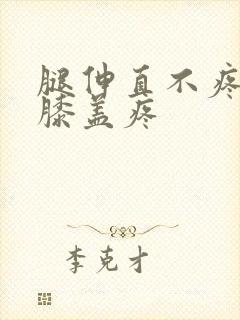 腿伸直不疼
膝盖疼
李克才